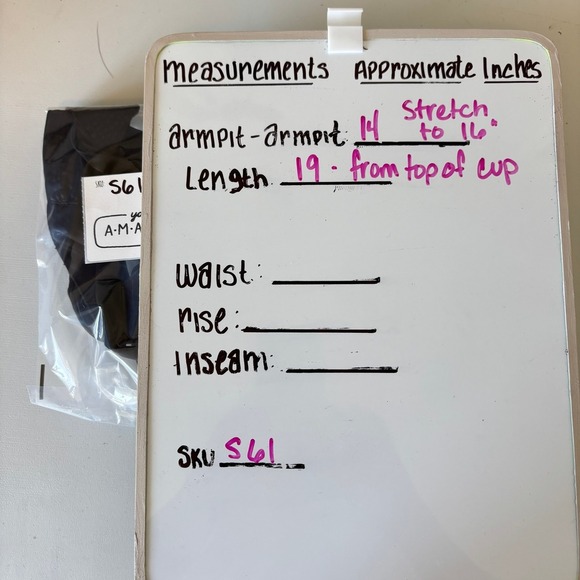 measurements Approximate Inches
armpit-armpit: 14 Stretch to 16"
Length 19 - from top of cup
waist:
rise:
Inseam:
SKU S61
SKU S61
A·M·A